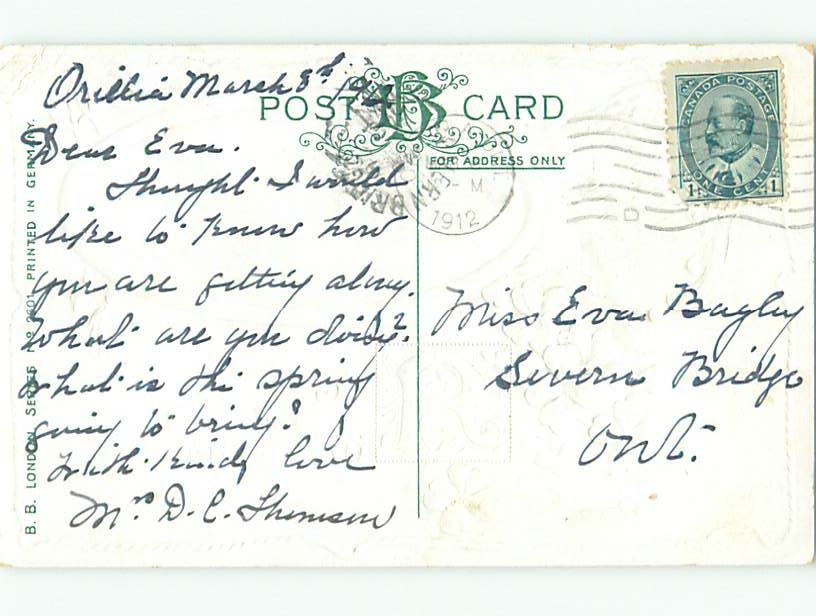 Orillia March 8th 1912
POST BB CARD
FOR ADDRESS ONLY
Dear Eva.
Thought I would
like to know how
you are getting along.
What are you doing?
What is this spring
going to bring?
With kindly love
Mrs D. C. Thomson
Miss Eva Bagley
Severn Bridge
Ont.
CANADA POSTAGE
1 ONE CENT 1
M
1912
ERN BRI
D
B. B. LONDON SERIES PRINTED IN GERMANY.